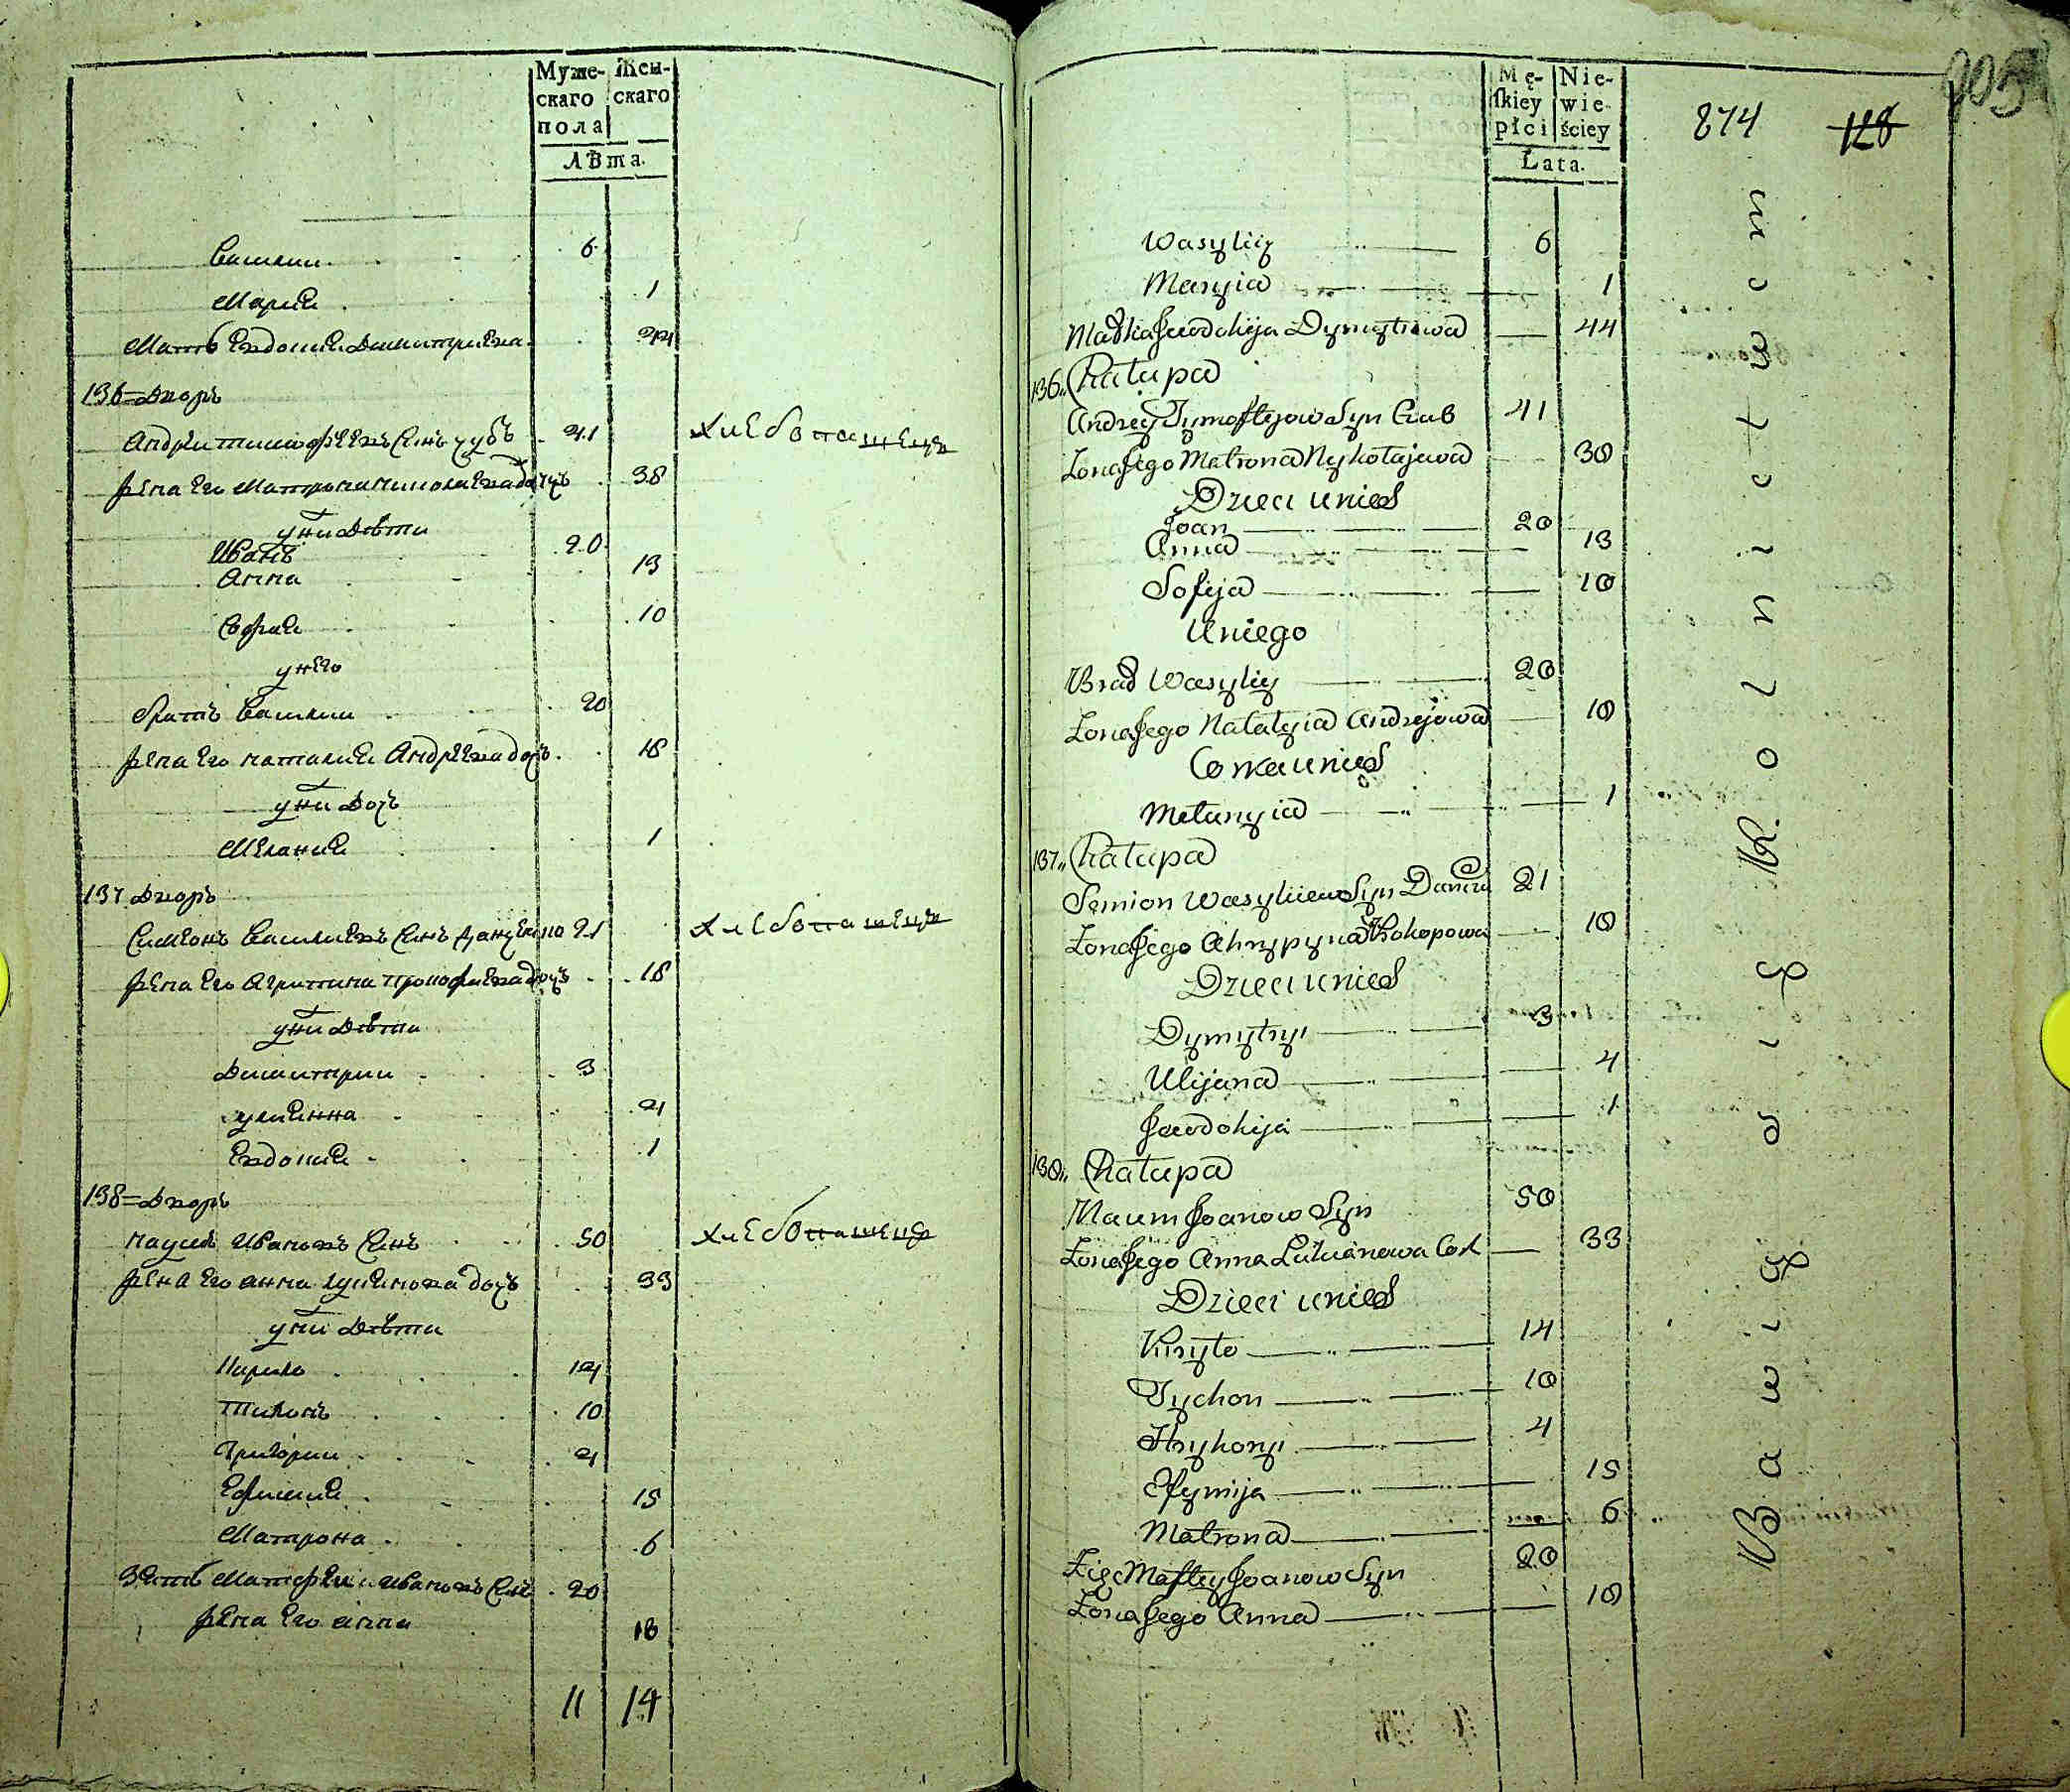 Муже-
скаго
пола
Жен-
скаго
лѣта.
Василии 6
Мариѧ 1
Мать Евдокиѧ Димитриева 44
136 = Дворъ
Андрѣи тимофѣевъ Синъ Чубъ 41 хлебопашецъ
жена Его Матрона николаева дочь 38
у ни Дѣти
Иванъ 20
Анна 13
Софиѧ 10
у него
братъ Василии 20
жена Его наталиѧ Андрѣева дочь 18
у ни Дочь
Меланиѧ 1
137 Дворъ
Симеонъ Василиевъ Синъ 21 хлебопашецъ
жена Его Агрипина прокофиева дочь 18
у ни Дѣти
Димитрии 3
улиѧнна 4
Евдокиѧ 1
138 = Дворъ
наумъ Ивановъ Синъ 50 хлебопашецъ
жена Его анна лукиѧнова дочь 33
у ни Дѣти
Кирило 14
Тихонъ 10
Григории 4
Ефимиѧ 15
Матрона 6
Зѧть Матфѣи Ивановъ Синъ 20
жена Его анна 18
11 14
Mę-
ſkiey
płci
Nie-
wie-
ściey
Lata.
874 128
Wasyliy 6
Maryia 1
Matka Jewdokija Dymytrowa 44
136,, Chałupa
Andrzey Tymoftejow Syn Czub 41
Żona Jego Matrona Nykołajewa 38
Dzieci u nich
Joan 20
Anna 13
Sofija 10
U niego
Brat Wasyliy 20
Żona Jego Natalyia Andrejowa 18
Corka u nich
Melanyia 1
137,, Chałupa
Semion Wasyliiew Syn 21
Żona Jego Ahrypyna Prokopowa 18
Dzieci u nich
Dymytryi 3
Ulijana 4
Jewdokija 1
138,, Chałupa
Naum Joanow Syn 50
Żona Jego Anna Lukianowa Cor 33
Dzieci u nich
Kiryło 14
Tychon 10
Hryhoryi 4
Efymija 15
Matrona 6
Zięć Maftey Joanow Syn 20
Żona Jego Anna 18
Bawią się Rolnictwem